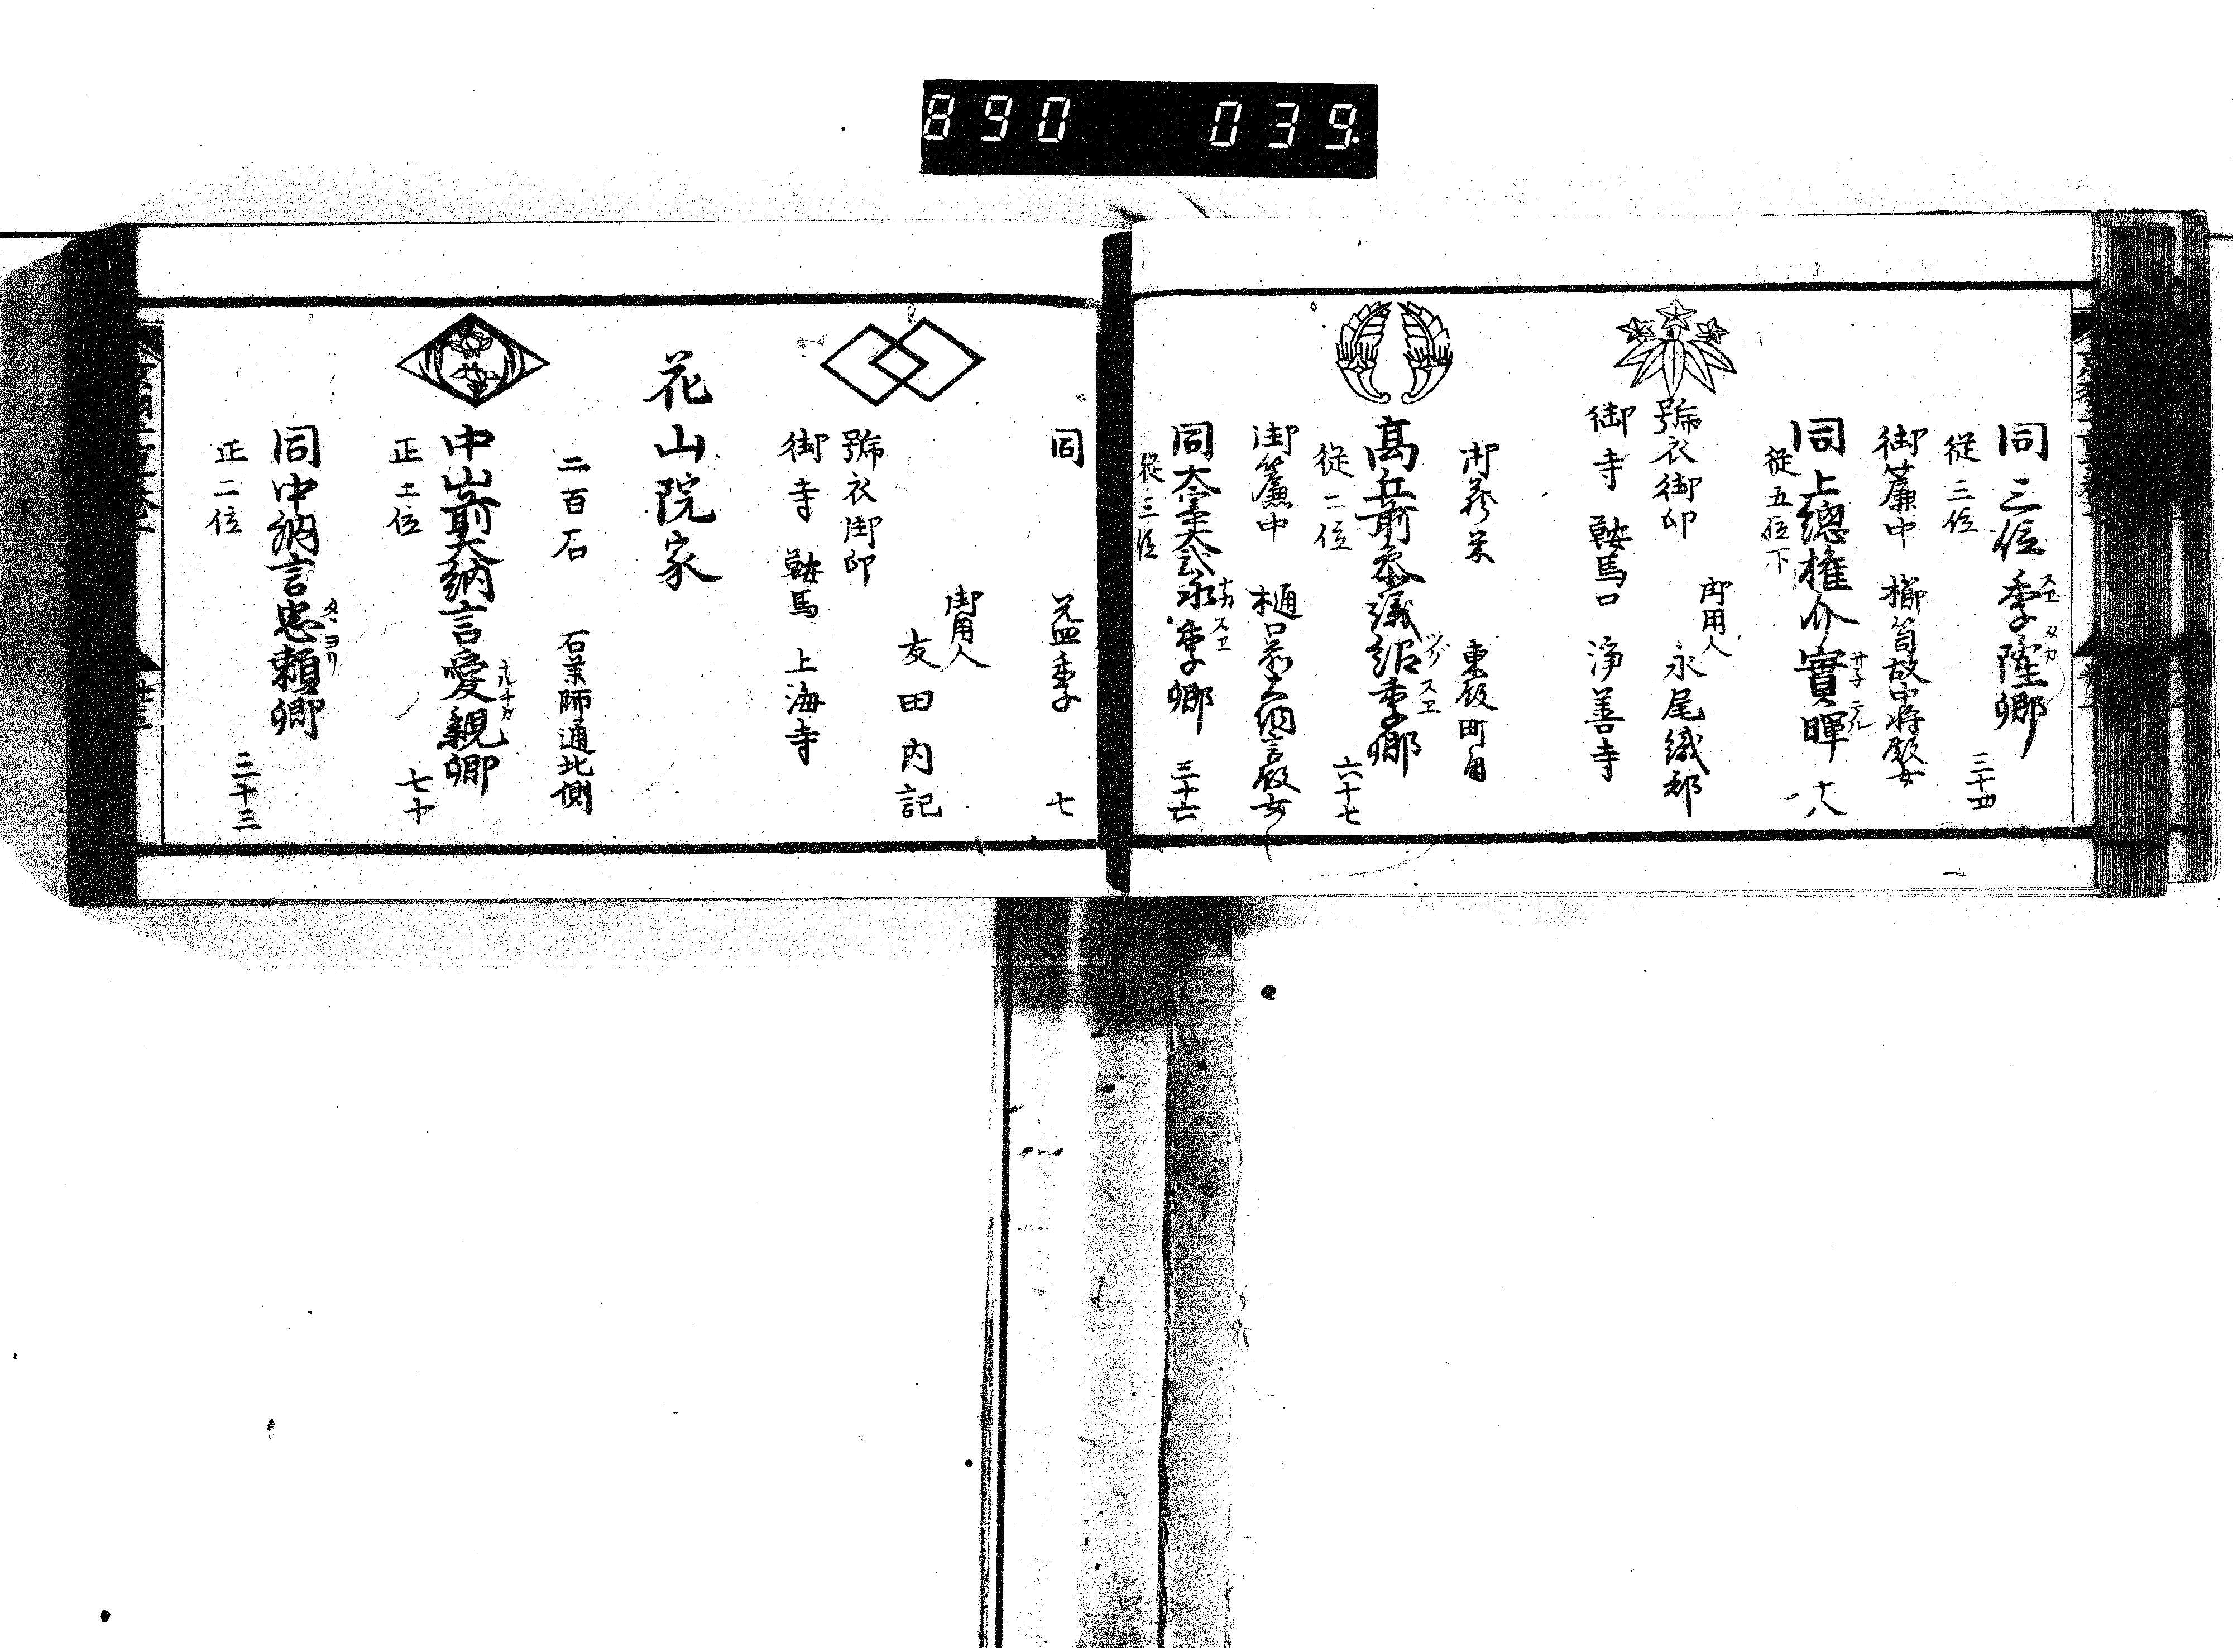 890 039
同三位季隆卿 スエ タカ
従三位 三十四
御簾中 櫛笥故中将殿女
同上總権介實暉 サネ テル 十八
従五位下
御用人
永尾織部
號衣御印
御寺 鞍馬口 浄善寺
東殿町角
高丘前参議紹季卿 ツグ スエ
従二位 六十七
御簾中 樋口前大納言殿女
同大宰大弐永季卿 ナカ スエ
従三位
同 益季 七
御用人
友田内記
號衣御印
御寺 鞍馬 上海寺
花山院家
二百石 石薬師通北側
中山前大納言愛親卿 ナルチカ
正二位 七十
同中納言忠頼卿 タヾヨリ
正二位 三十三